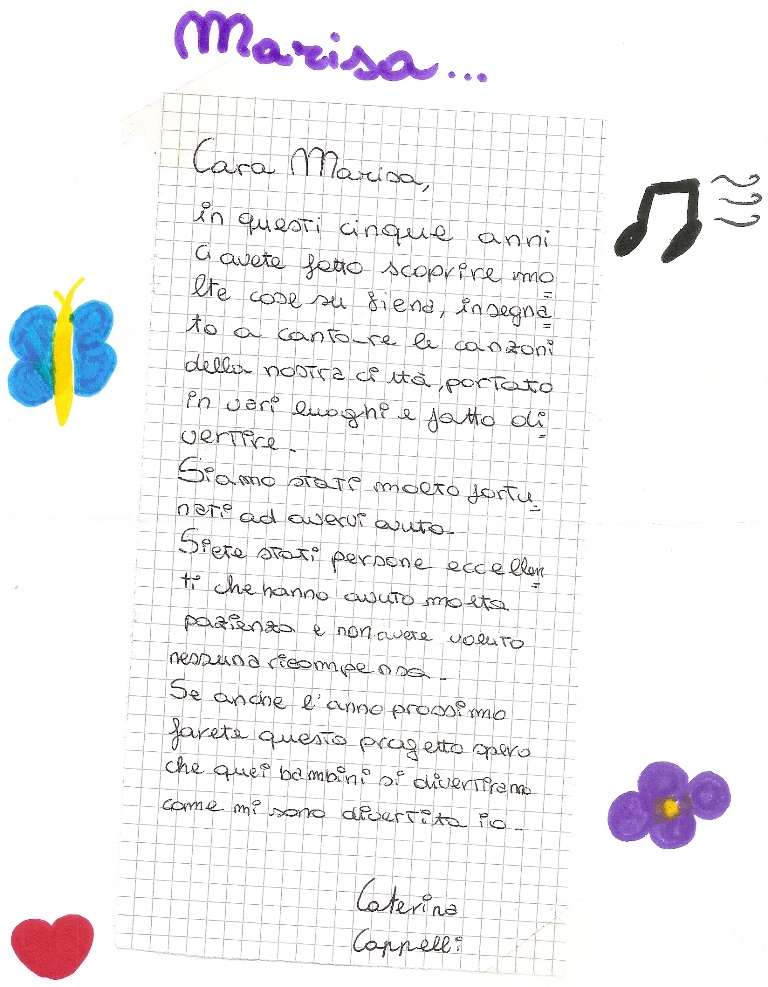 Marisa...
Cara Marisa,
in questi cinque anni
ci avete fatto scoprire mo=
lte cose su Siena, insegna=
to a cantare le canzoni
della nostra città, portato
in vari luoghi e fatto di=
vertire.
Siamo stati molto fortu=
nati ad avervi avuto.
Siete stati persone eccellen=
ti che hanno avuto molta
pazienza e non avete voluto
nessuna ricompensa.
Se anche l'anno prossimo
farete questo progetto spero
che quei bambini si divertirano
come mi sono divertita io.
Caterina
Cappelli